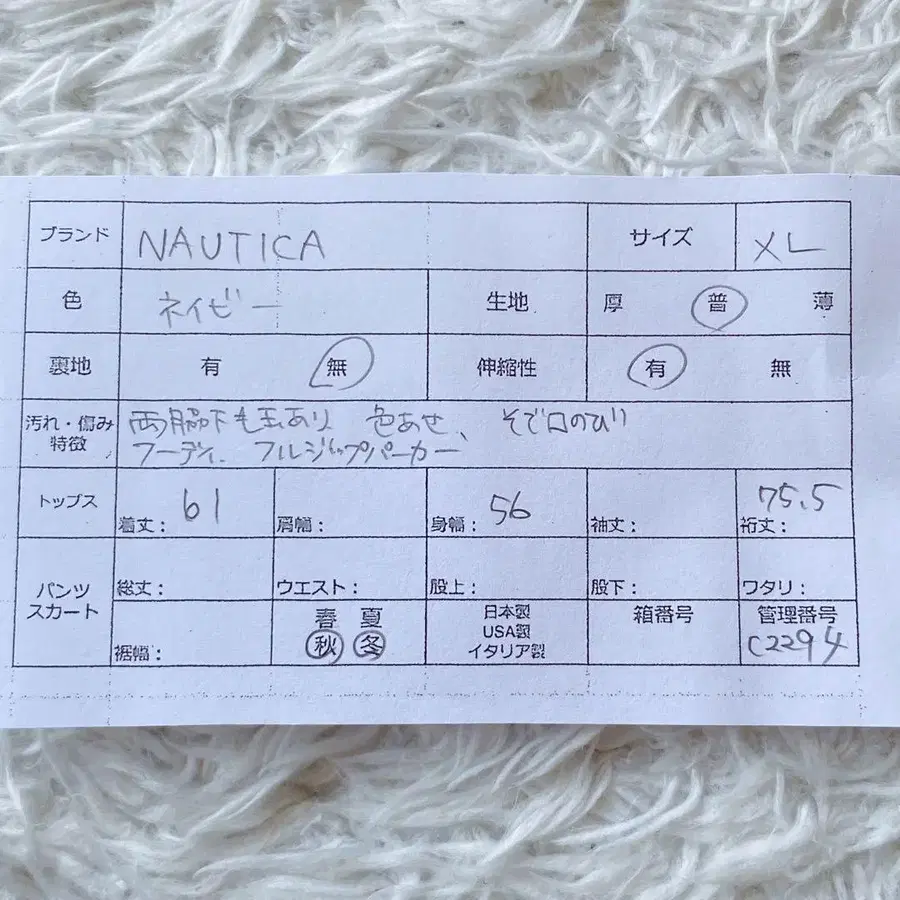 ブランド NAUTICA サイズ XL
色 ネイビー 生地 厚 普 薄
裏地 有 無 伸縮性 有 無
汚れ・傷み 両脇下毛玉あり 色あせ、そで口のび
特徴 フーディ、フルジップパーカー
トップス 着丈: 61 肩幅: 身幅: 56 袖丈: 裄丈: 75.5
パンツ スカート 総丈: ウエスト: 股上: 股下: ワタリ:
裾幅: 春 夏 日本製 箱番号 管理番号
秋 冬 USA製 C2294
イタリア製